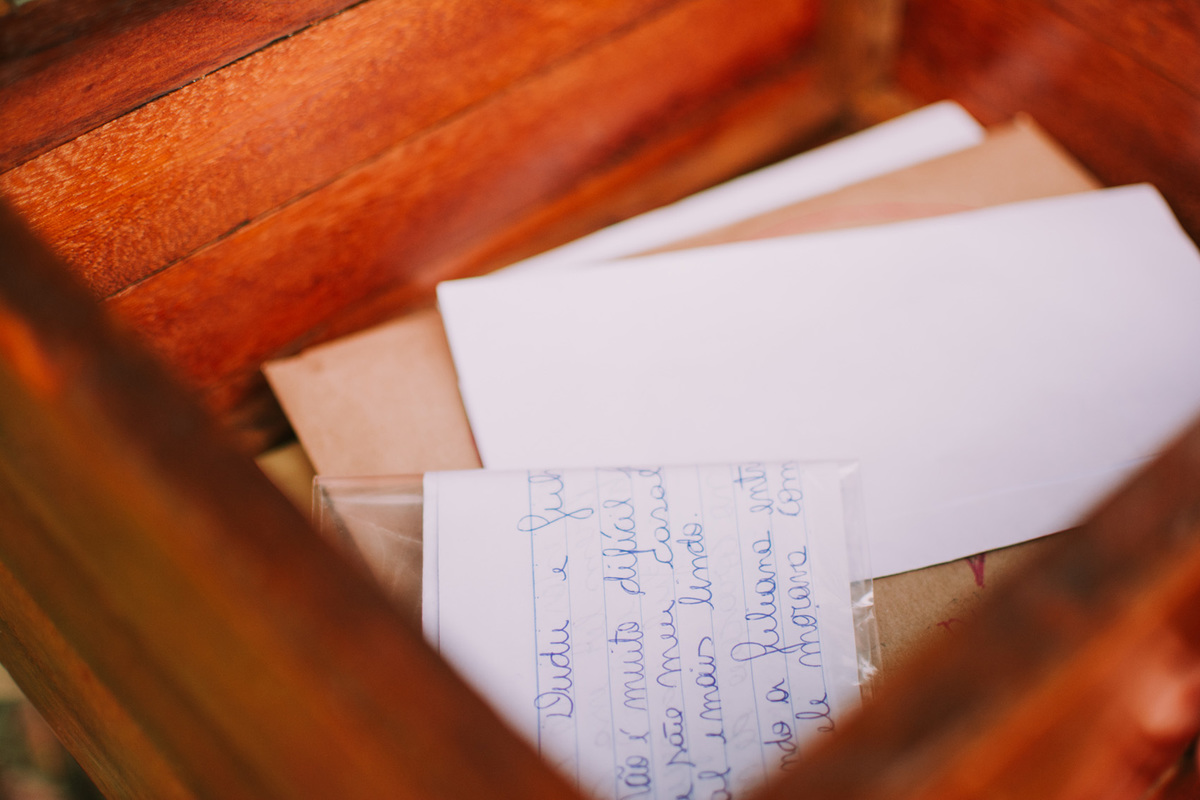 Dudu e Juli
não é muito difícil
são meu casal
e mais lindo.
ndo a Juliana entr
ele morava com